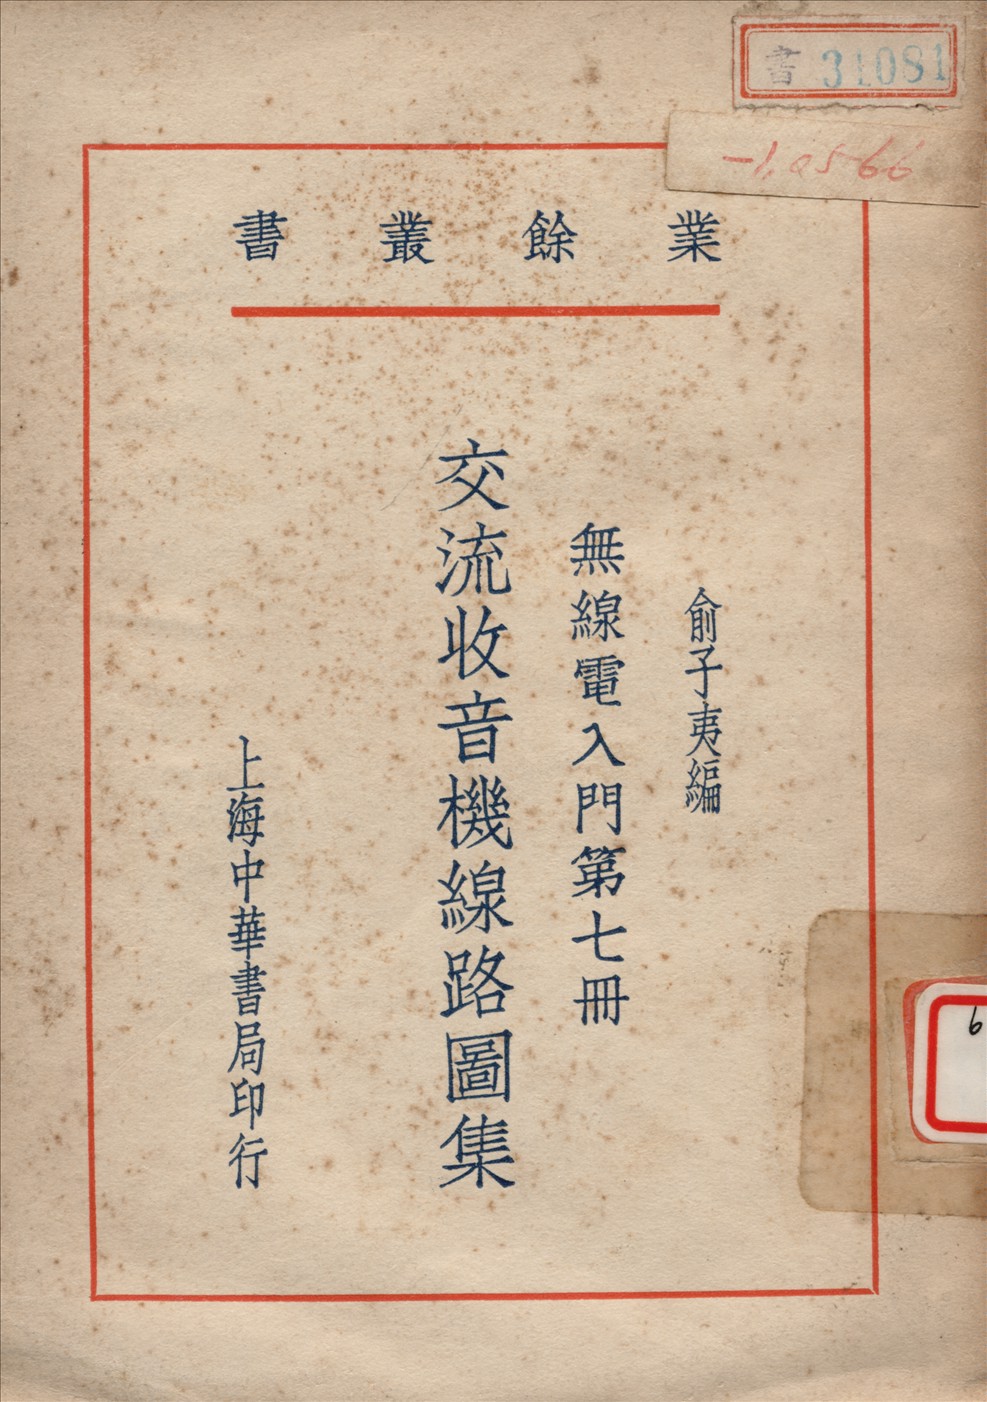 書 31081
-1,0566
業餘叢書
俞子夷編
無線電入門第七冊
交流收音機線路圖集
上海中華書局印行
6